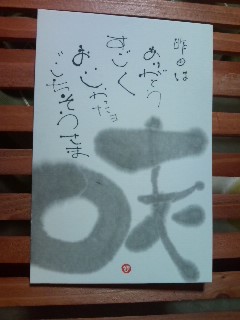 昨日は
ありがとう
すごく
おいしかったヨ
ごちそうさま
味